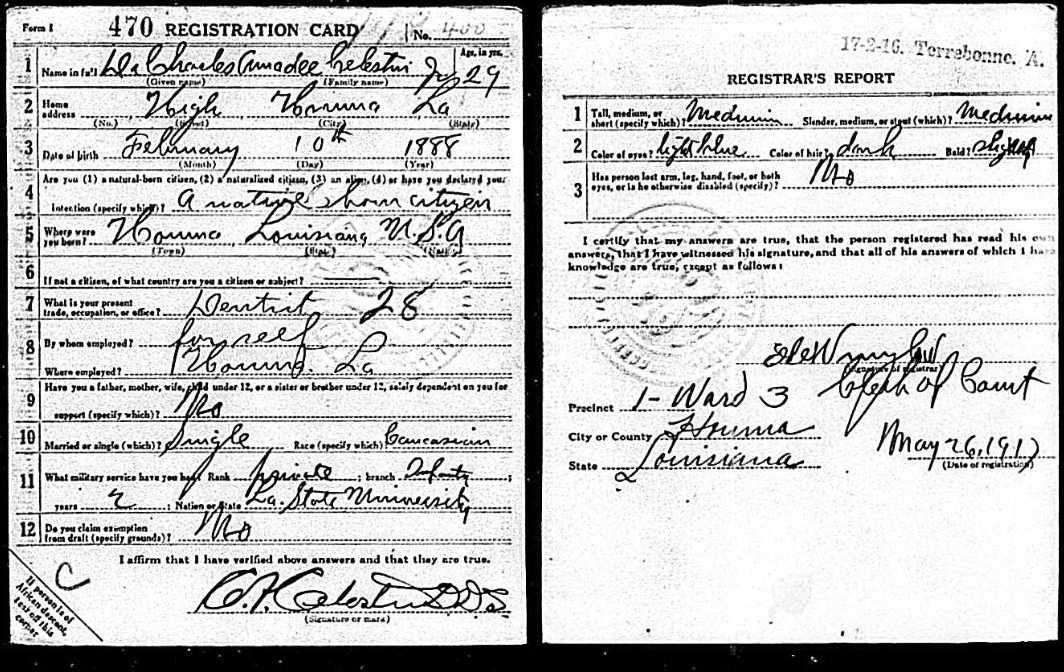 Form 1 470 REGISTRATION CARD No. 400
1 Name in full Dr Charles Amadee Celestin Jr Age, in yrs. 29
(Given name) (Family name)
2 Home address High Houma La
(No.) (Street) (City) (State)
3 Date of birth February 10th 1888
(Month) (Day) (Year)
4 Are you (1) a natural-born citizen, (2) a naturalized citizen, (3) an alien, (4) or have you declared your
intention (specify which)? A native born citizen
5 Where were you born? Houma Louisiana U.S.A
(Town) (State) (Nation)
6 If not a citizen, of what country are you a citizen or subject?
7 What is your present trade, occupation, or office? Dentist 28
8 By whom employed? for self
Where employed? Houma. La
9 Have you a father, mother, wife, child under 12, or a sister or brother under 12, solely dependent on you for
support (specify which)? No
10 Married or single (which)? Single Race (specify which) Caucasian
11 What military service have you had? Rank private ; branch Infantry ;
years 2 ; Nation or State La. State University
12 Do you claim exemption from draft (specify grounds)? No
I affirm that I have verified above answers and that they are true.
C. A. Celestin DDS
(Signature or mark)
C
If person is of
African descent,
tear off this
corner
17-2-16. Terrebonne. A.
REGISTRAR'S REPORT
1 Tall, medium, or short (specify which)? Medium Slender, medium, or stout (which)? Medium
2 Color of eyes? light blue Color of hair? dark Bald? slightly
3 Has person lost arm, leg, hand, foot, or both
eyes, or is he otherwise disabled (specify)? No
I certify that my answers are true, that the person registered has read his own
answers, that I have witnessed his signature, and that all of his answers of which I have
knowledge are true, except as follows:
(Signature of registrar)
Clerk of Court
Precinct 1 - Ward 3
City or County Houma
May 26, 1917
State Louisiana
(Date of registration)